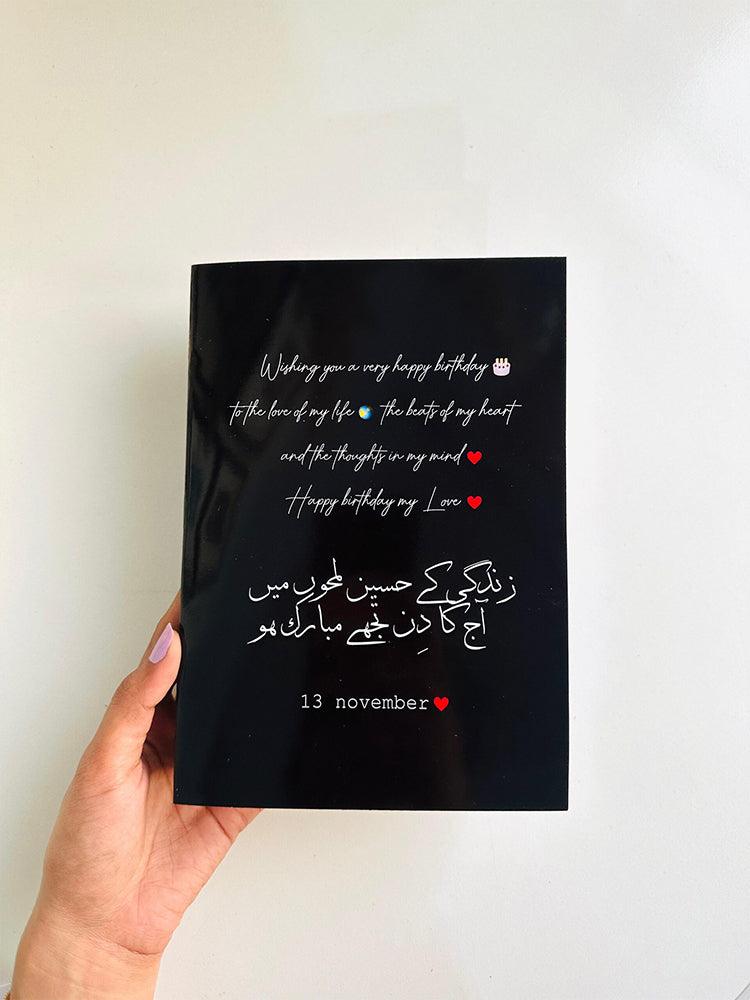 Wishing you a very happy birthday 🎂
to the love of my life 🌍 the beats of my heart
and the thoughts in my mind ❤️
Happy birthday my Love ❤️
زندگی کے حسین لمحوں میں
آج کا دِن تجھے مبارک ہو
13 november❤️